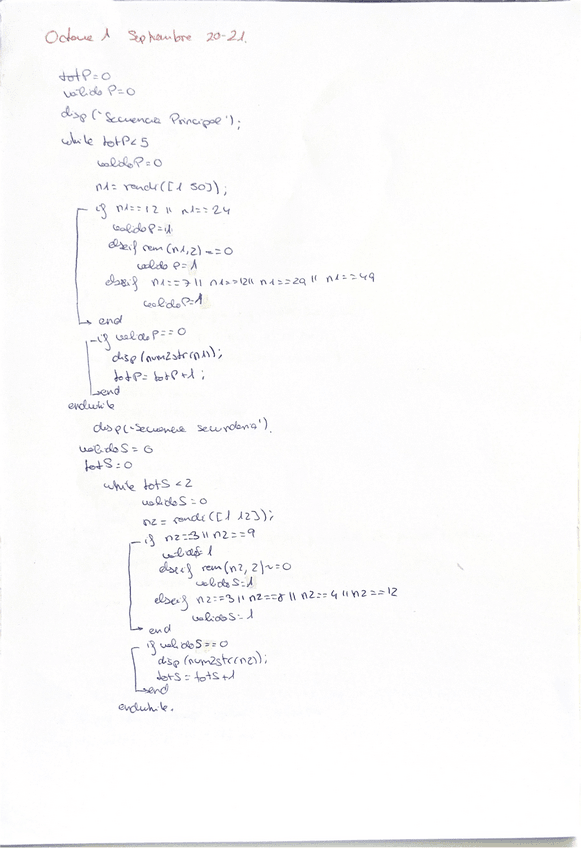 Octave 1 Septiembre 20-21.
totP=0
validoP=0
disp('Secuencia Principal');
while totP<5
validoP=0
n1=randi([1 50]);
if n1==12 || n1==24
validoP=1
elseif rem(n1,2)~=0
validoP=1
elseif n1==7 || n1==12 || n1==29 || n1==49
validoP=1
end
if validoP==0
disp(num2str(n1));
totP=totP+1;
end
endwhile
disp('Secuencia secundaria')
validoS=0
totS=0
while totS<2
validoS=0
n2=randi([1 12]);
if n2==3 || n2==9
validoS=1
elseif rem(n2,2)~=0
validoS=1
elseif n2==3 || n2==8 || n2==4 || n2==12
validoS=1
end
if validoS==0
disp(num2str(n2));
totS=totS+1
end
endwhile.